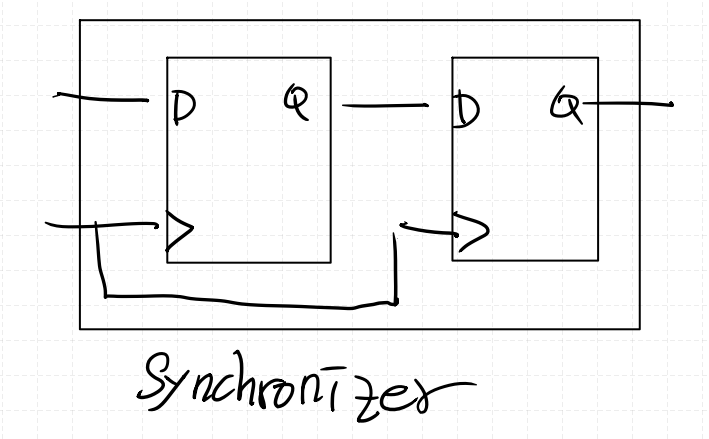 D Q D Q
Synchronizer